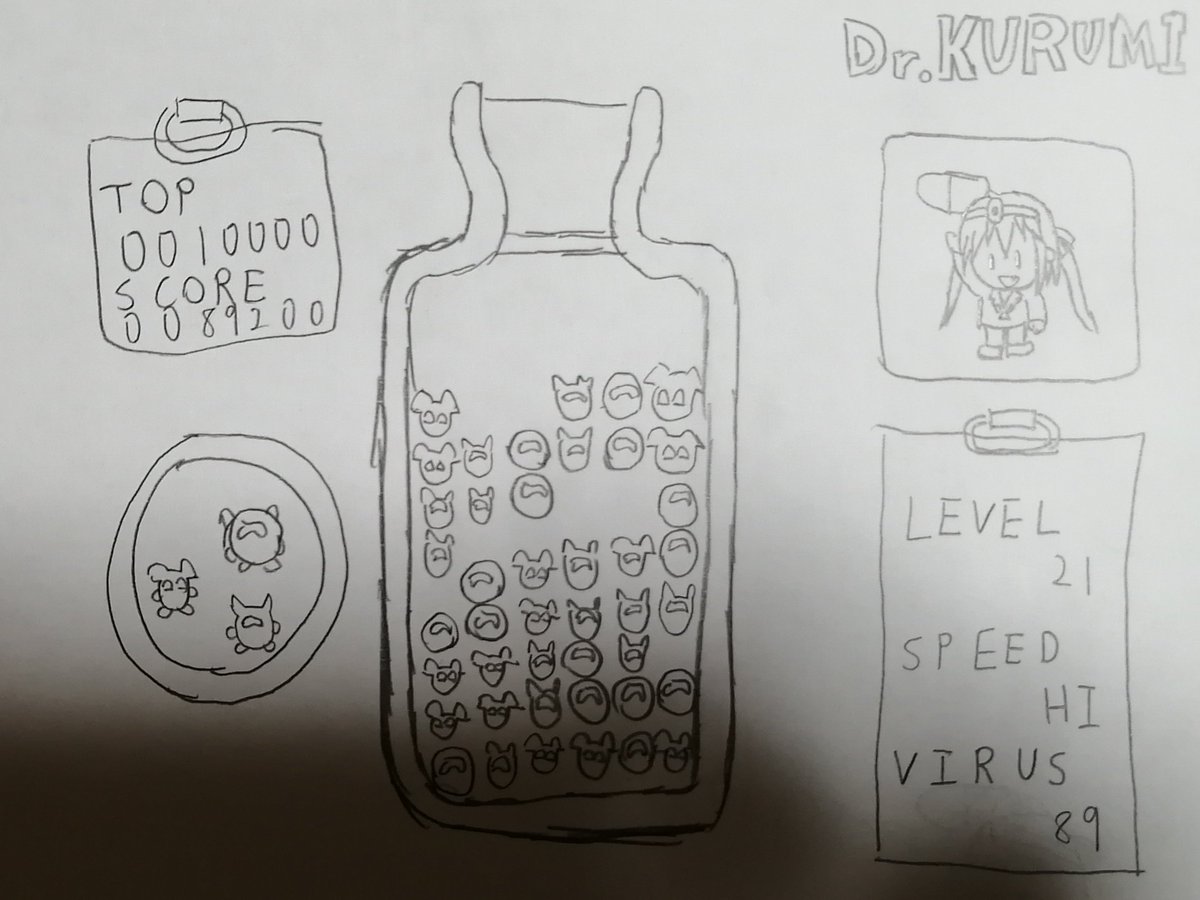 Dr.KURUMI
TOP
0010000
SCORE
0089200
LEVEL
21
SPEED
HI
VIRUS
89